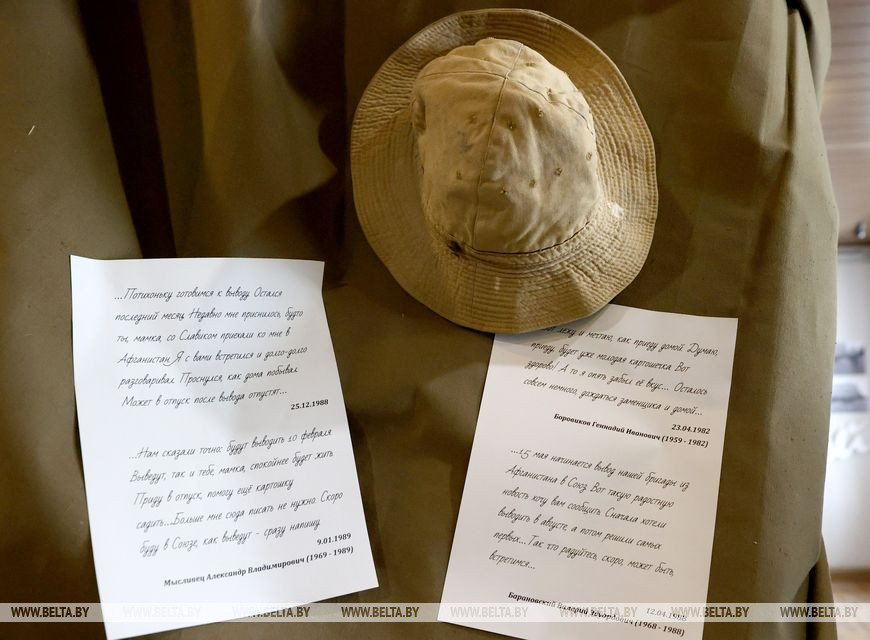 ...Потихоньку готовимся к выводу. Остался
последний месяц. Недавно мне приснилось, будто
ты, мамка, со Славиком приехали ко мне в
Афганистан. Я с вами встретился и долго-долго
разговаривал. Проснулся, как дома побывал.
Может в отпуск после вывода отпустят...
25.12.1988
...Нам сказали точно: будут выводить 10 февраля.
Выведут, так и тебе, мамка, спокойнее будет жить.
Приду в отпуск, помогу ещё картошку
садить...Больше мне сюда писать не нужно. Скоро
буду в Союзе, как выведут - сразу напишу.
9.01.1989
Мысливец Александр Владимирович (1969 - 1989)
лежу и мечтаю, как приеду домой. Думаю,
приеду, будет уже молодая картошечка. Вот
здорово! А то я опять забыл её вкус... Осталось
совсем немного, дождаться заменщика и домой...
23.04.1982
Боровиков Геннадий Иванович (1959 - 1982)
...15 мая начинается вывод нашей бригады из
Афганистана в Союз. Вот такую радостную
новость хочу вам сообщить. Сначала хотели
выводить в августе, а потом решили самых
первых...Так что радуйтесь, скоро, может быть,
встретимся...
12.04.1988
Барановский Валерий Эдуардович (1968 - 1988)
WWW.BELTA.BY WWW.BELTA.BY WWW.BELTA.BY WWW.BELTA.BY WWW.BELTA.BY WWW.BELTA.BY WWW.BELTA.BY WWW.BELTA.BY